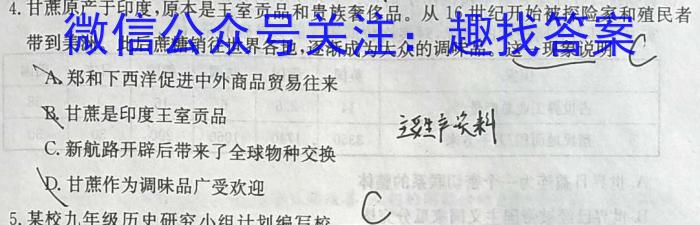 4.甘蔗原产于印度,原本是王室贡品和贵族奢侈品。从16世纪开始被探险家和殖民者
微信公众号关注：趣找答案
带到美洲，此后蔗糖销往世界各地,逐渐成为大众的调味品。这一现象说明 C
A.郑和下西洋促进中外商品贸易往来
B.甘蔗是印度王室贡品
C.新航路开辟后带来了全球物种交换
D.甘蔗作为调味品广受欢迎
C
5.某校九年级历史研究小组计划编写校